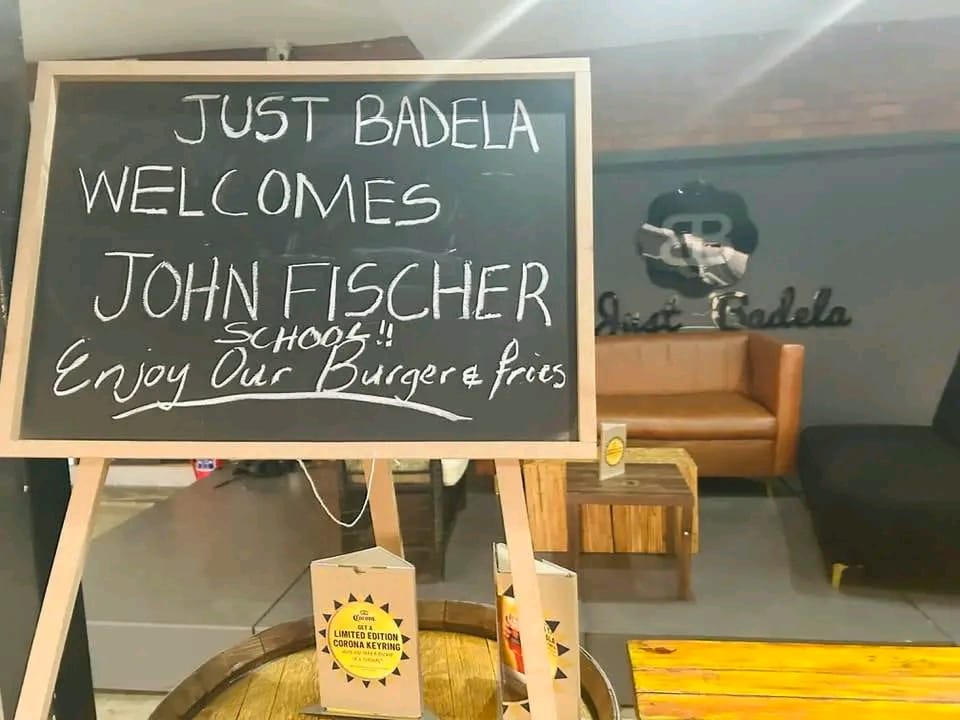 JUST BADELA
WELCOMES
JOHN FISCHER
SCHOOL!!
Enjoy Our Burger & fries
BB
Just Badela
Corona
GET A
LIMITED EDITION
CORONA KEYRING